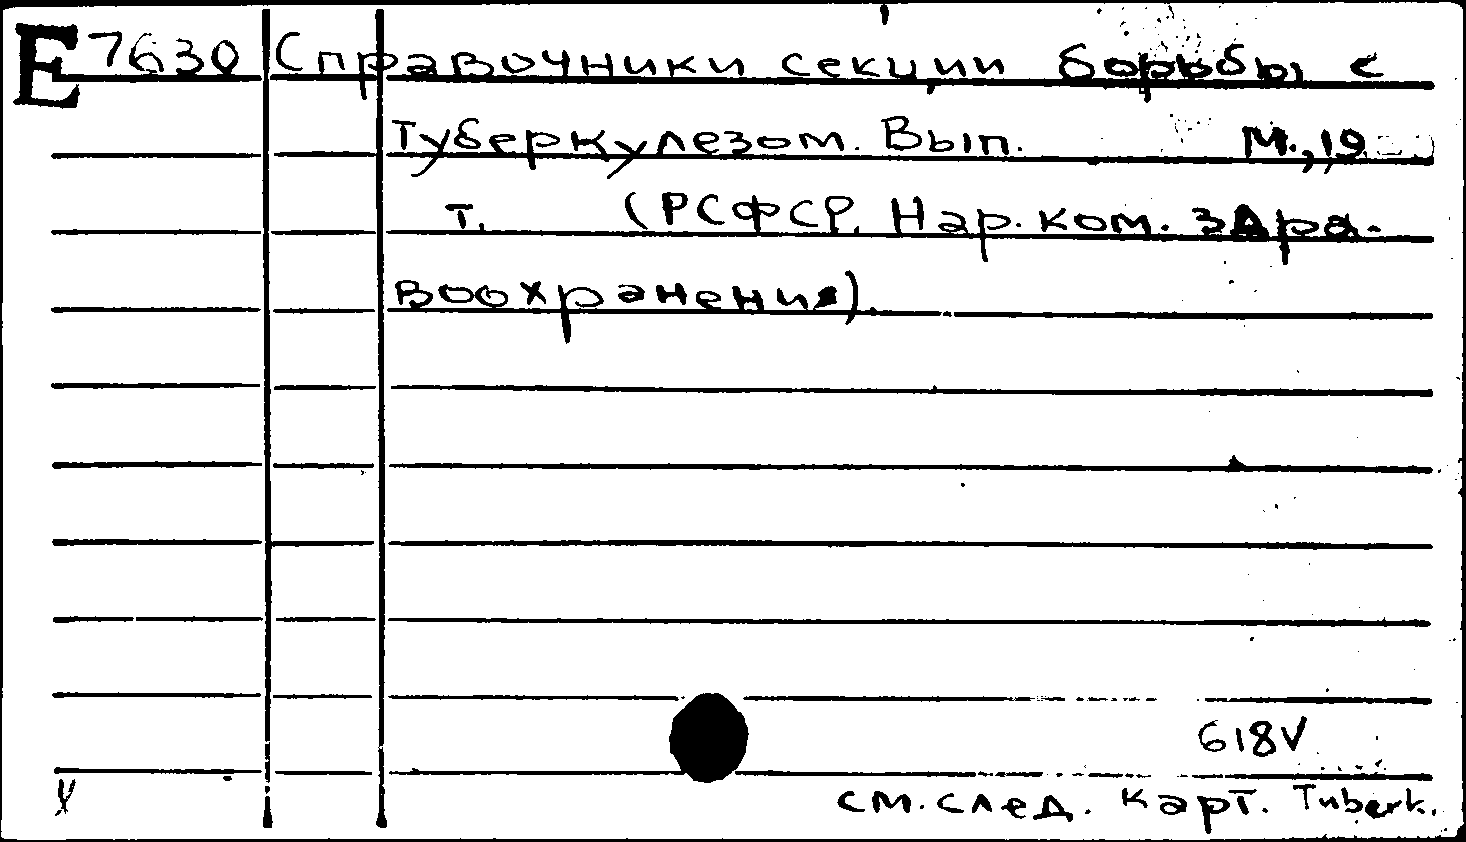 E 7630 Справочники секции борьбы с
туберкулезом. Вып. М., 19
т. (РСФСР. Нар. ком. здра-
воохранения).
618V
см. след. карт. Tuberk.